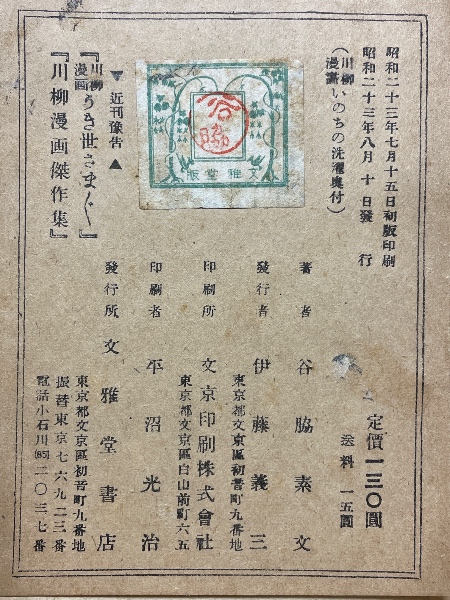 昭和二十三年七月十五日初版印刷
昭和二十三年八月十日發行
(川柳漫画いのちの洗濯奥付)
定價一三〇圓
送料 一五圓
著者 谷脇素文
發行者 伊藤義三
東京都文京區初音町九番地
印刷所 文京印刷株式會社
東京都文京區白山前町六五
印刷者 平沼光治
發行所 文雅堂書店
東京都文京區初音町九番地
振替東京七六九二三番
電話小石川(85)二〇三七番
▼近刊豫告▲
『川柳漫画うき世さまざま』
『川柳漫画傑作集』
版堂雅文